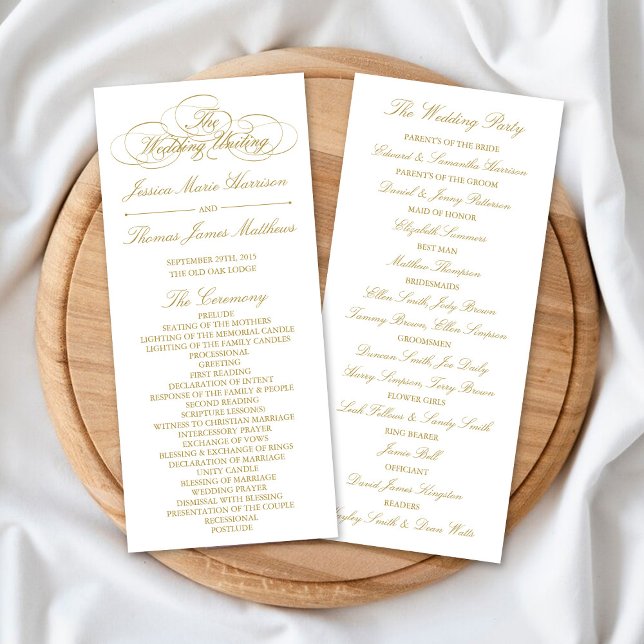 The
Wedding Uniting
Jessica Marie Harrison
AND
Thomas James Matthews
SEPTEMBER 29TH, 2015
THE OLD OAK LODGE
The Ceremony
PRELUDE
SEATING OF THE MOTHERS
LIGHTING OF THE MEMORIAL CANDLE
LIGHTING OF THE FAMILY CANDLES
PROCESSIONAL
GREETING
FIRST READING
DECLARATION OF INTENT
RESPONSE OF THE FAMILY & PEOPLE
SECOND READING
SCRIPTURE LESSON(S)
WITNESS TO CHRISTIAN MARRIAGE
INTERCESSORY PRAYER
EXCHANGE OF VOWS
BLESSING & EXCHANGE OF RINGS
DECLARATION OF MARRIAGE
UNITY CANDLE
BLESSING OF MARRIAGE
WEDDING PRAYER
DISMISSAL WITH BLESSING
PRESENTATION OF THE COUPLE
RECESSIONAL
POSTLUDE
The Wedding Party
PARENT'S OF THE BRIDE
Edward & Samantha Harrison
PARENT'S OF THE GROOM
Daniel & Jenny Patterson
MAID OF HONOR
Elizabeth Summers
BEST MAN
Matthew Thompson
BRIDESMAIDS
Ellen Smith, Jody Brown
Tammy Brown, Ellen Simpson
GROOMSMEN
Duncan Smith, Joe Daily
Harry Simpson, Terry Brown
FLOWER GIRLS
Leah Fellows & Sandy Smith
RING BEARER
Jamie Bell
OFFICIANT
David James Kingston
READERS
Hayley Smith & Dean Watts